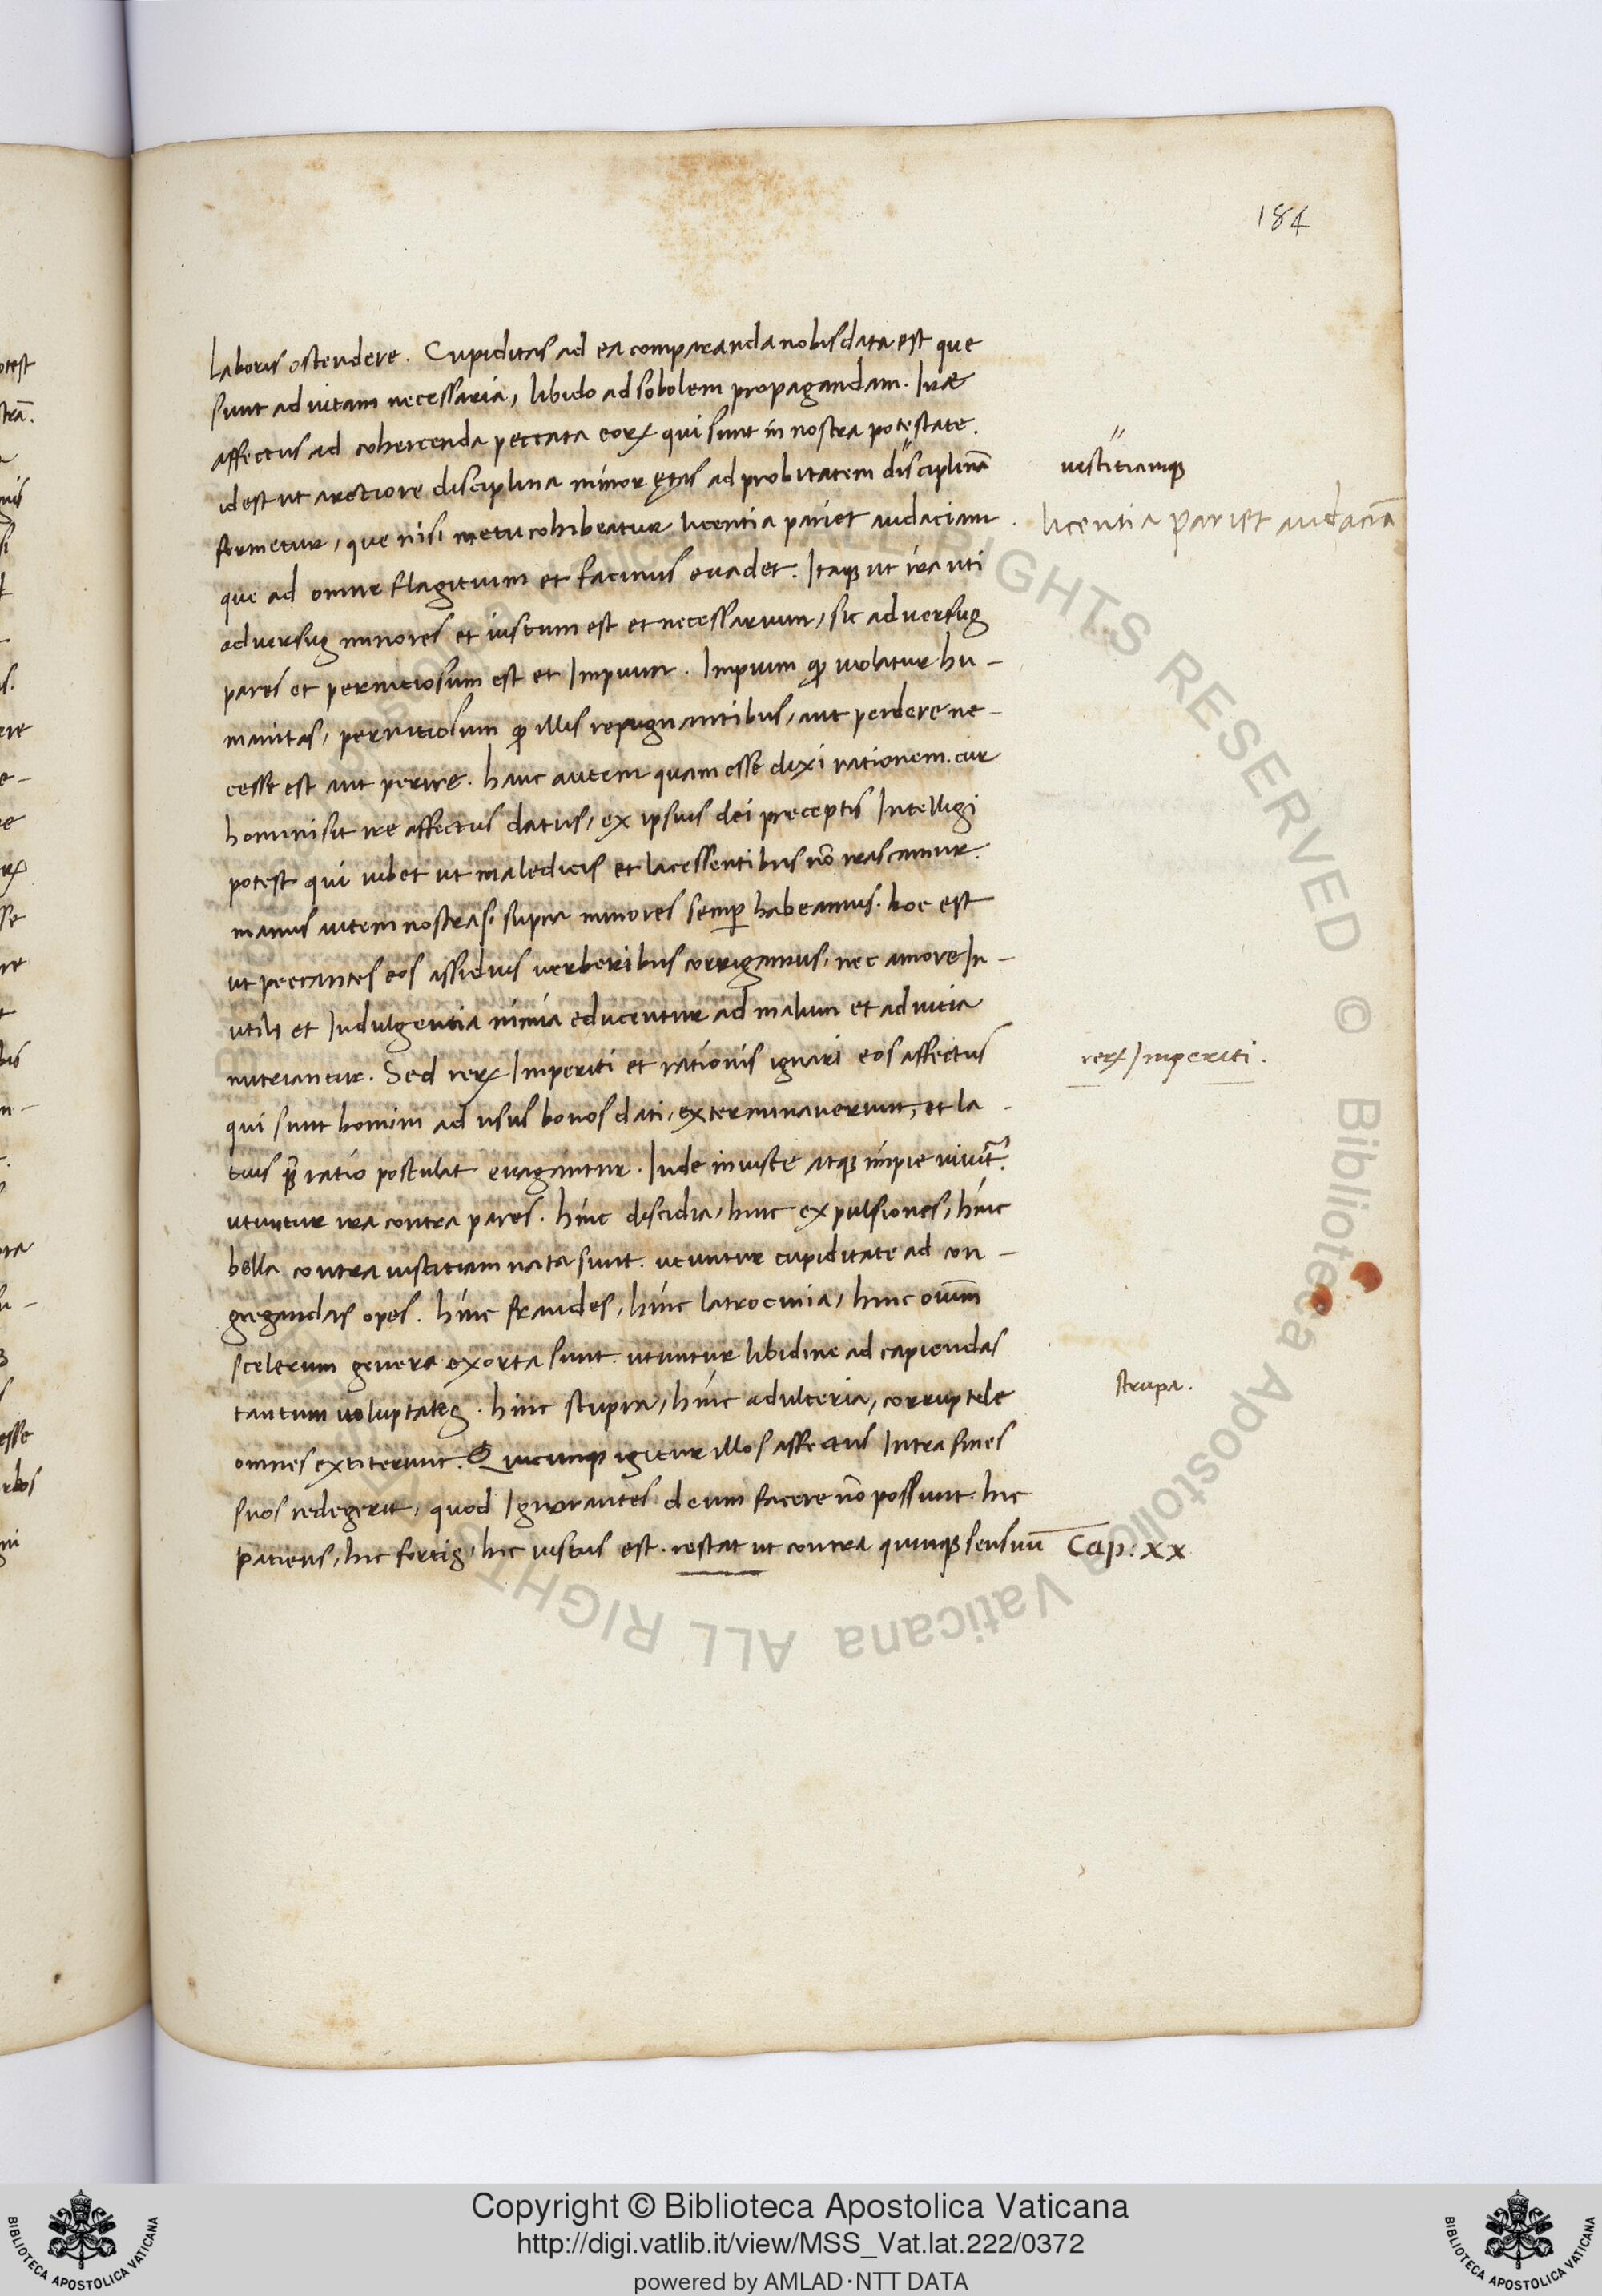 184
laboris ostendere. Cupiditas ad ea comparanda nobis data est que
sunt ad uitam necessaria, libido ad sobolem propagandam. Iræ
affectus ad cohercenda peccata eorꝝ qui sunt in nostra potestate.
id est ut arctiore disciplina minor ętas ad probitatem disciplinā
iustitiamqꝫ
formetur, que nisi metu cohibeatur licentia pariet audaciam
licentia pariet audaciā
que ad omne flagitium et facinus euadet. Itaqꝫ ut ira uti
aduersus minores et iustum est et necessarium, sic aduersus
pares et pernitiosum est et Impium. Impium ꝙ uiolatur hu-
manitas, pernitiosum ꝙ illis repugnantibus, aut perdere ne-
cesse est aut perire. hanc autem quam esse dixi rationem. cur
homini sit ire affectus datus, ex ipsius dei preceptis Intelligi
potest qui iubet ut maledicis et lacessentibus nō irascamur.
manus autem nostras supra minores semꝑ habeamus. hoc est
ut peccantes eos assiduis uerberibus corrigamus, nec amore In-
utili et Indulgentia nimia educentur ad malum et ad uitia
nutriantur. Sed rerꝝ Imperiti et rationis ignari eos affectus
rerꝝ Imperiti.
qui sunt homini ad usus bonos dati, exterminauerunt, et la-
tius ꝙ̄ ratio postulat euagantur. Inde iniuste atqꝫ impie uiuūt.
utuntur ira contra pares. hinc discidia, hinc expulsiones, hinc
bella contra iustitiam nata sunt. utuntur cupiditate ad con-
gregandas opes. hinc fraudes, hinc latrocinia, hinc oīum
scelerum genera exorta sunt. utuntur libidine ad capiendas
tantum uoluptates. hinc stupra, hinc adulteria, corruptele
strupa.
omnes extiterunt. Quicunqꝫ igitur illos affectus Intra fines
suos redegerit, quod Ignorantes deum facere nō possunt. hic
patiens, hic fortis, hic iustus est. restat ut contra quinqꝫ sensuū
Cap: xx
Copyright © Biblioteca Apostolica Vaticana
http://digi.vatlib.it/view/MSS_Vat.lat.222/0372
powered by AMLAD·NTT DATA
BIBLIOTECA APOSTOLICA VATICANA
BIBLIOTECA APOSTOLICA VATICANA